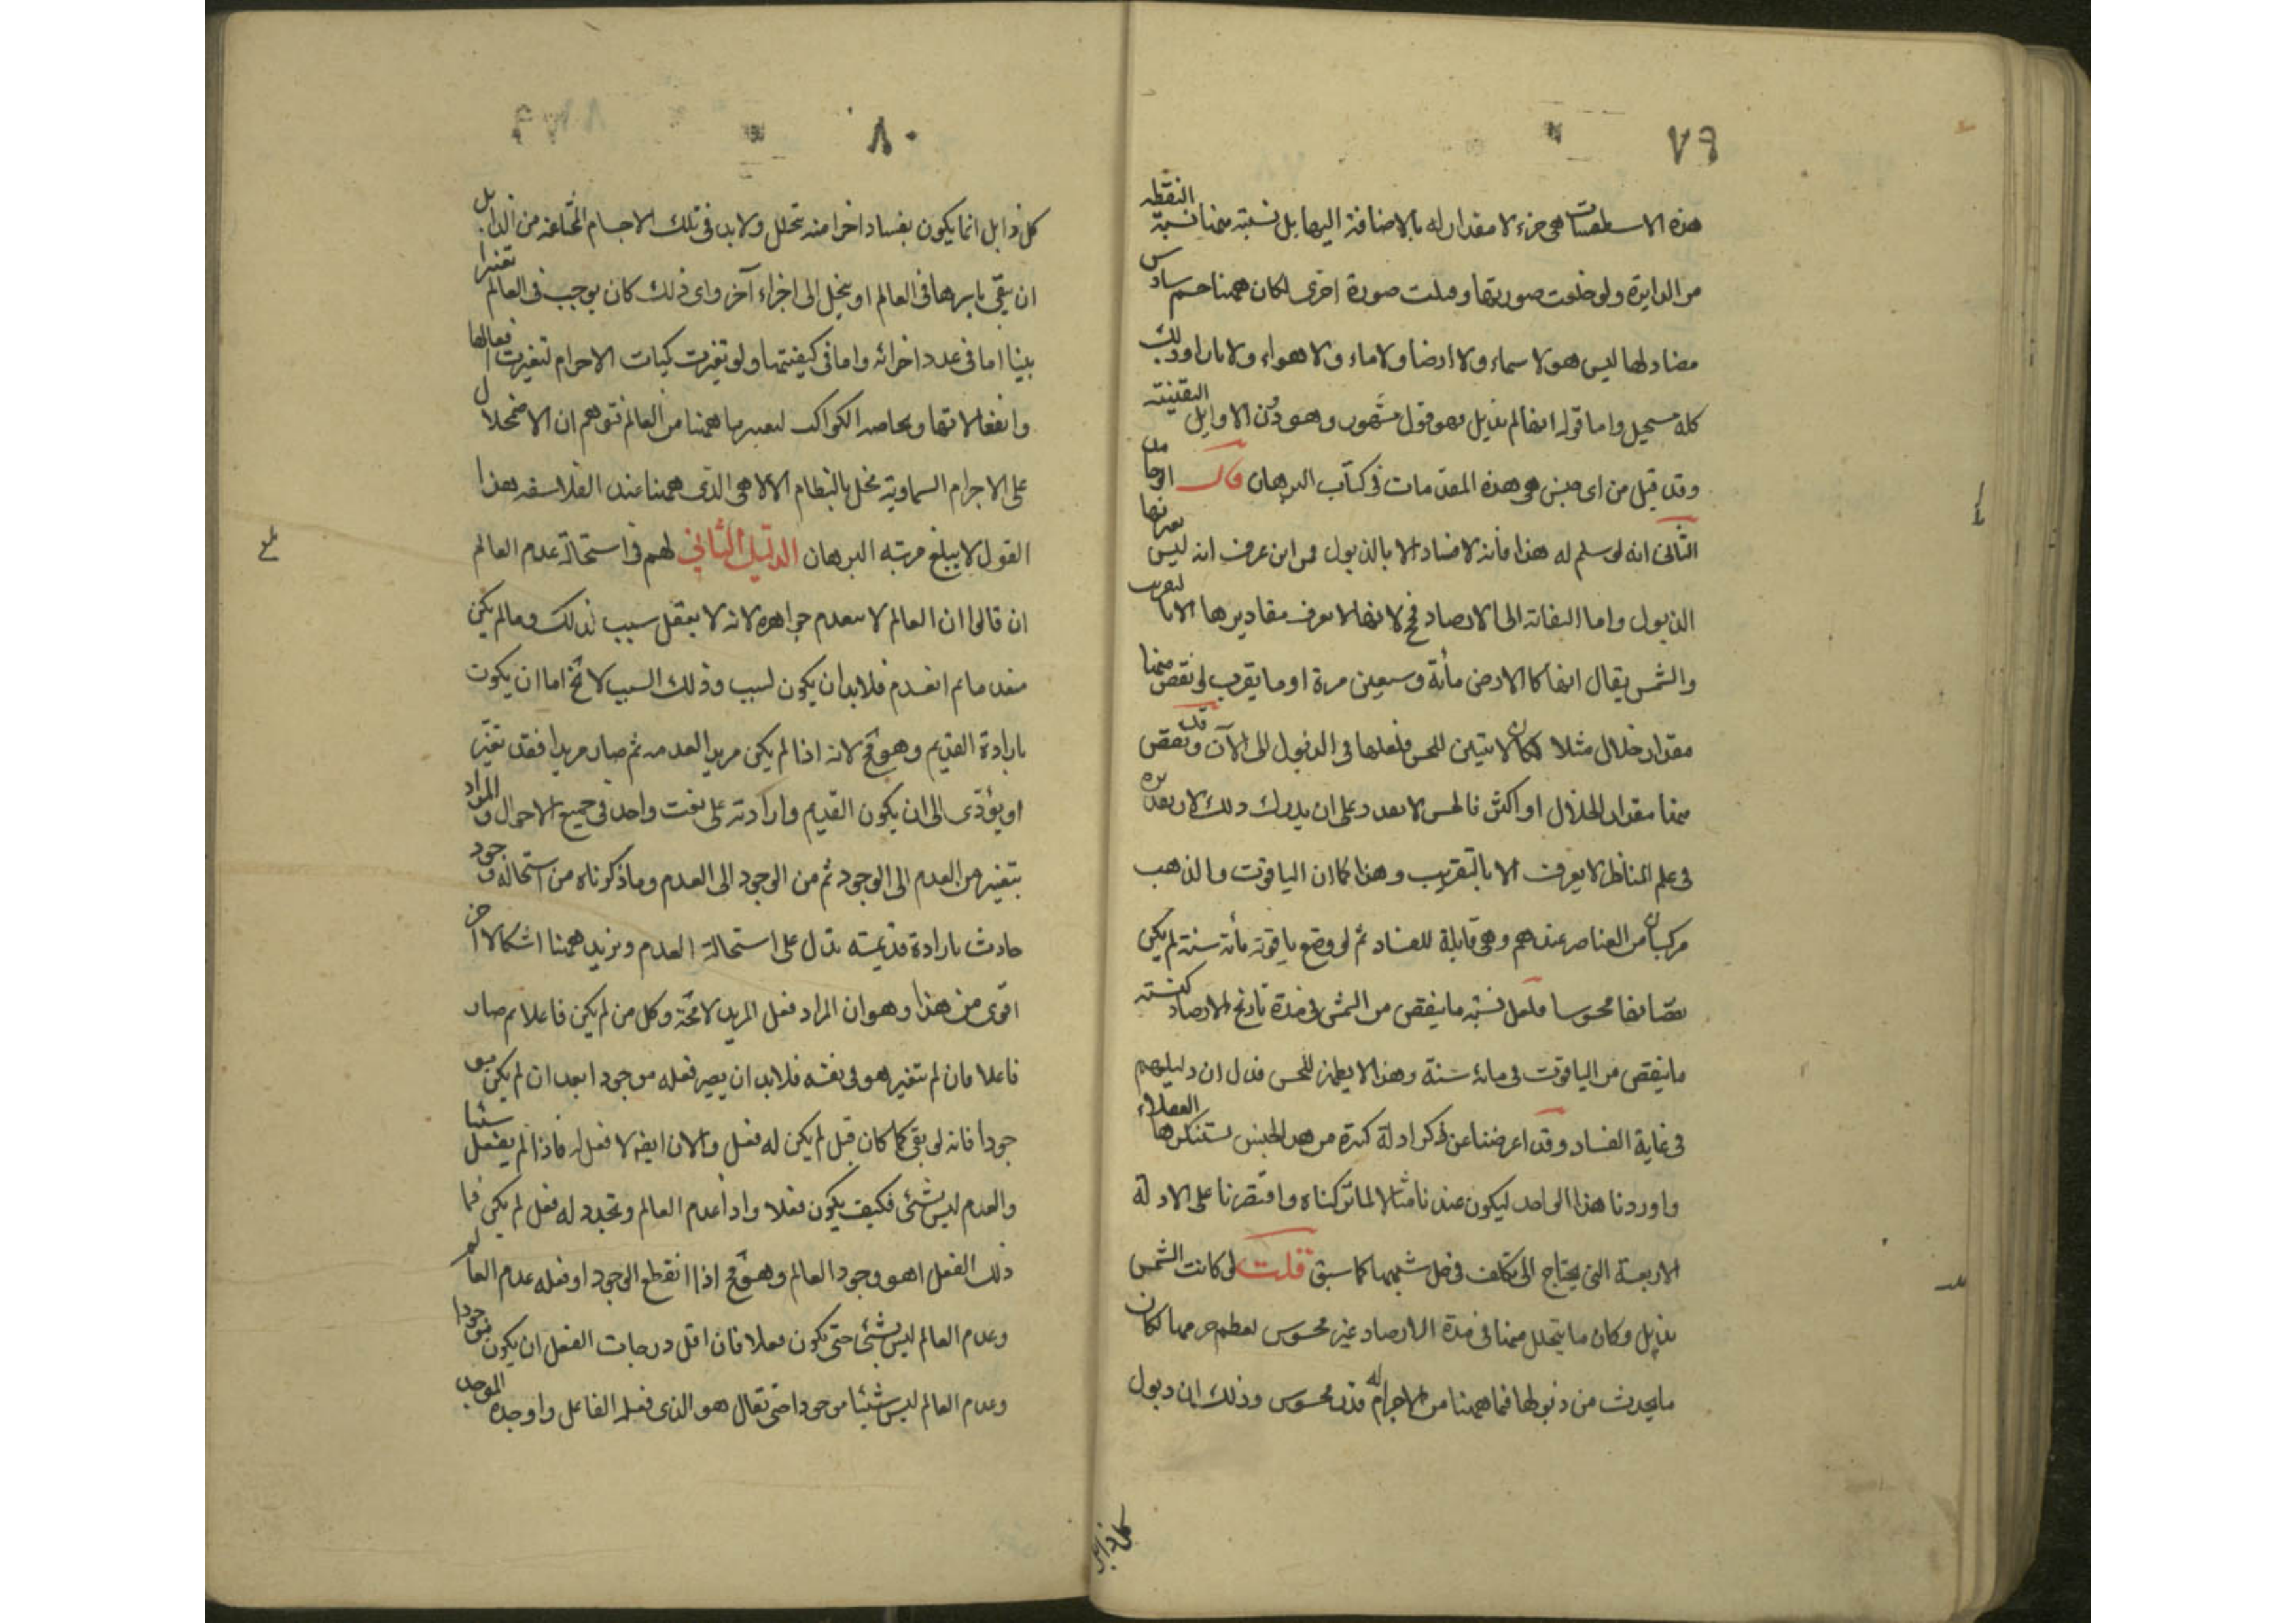 ٧٩
هذه الاسطقسات هى جزء لا مقدار له بالاضافة اليها بل نسبته منها نسبة النقطه
من الدايرة ولو خلعت صورتها وقبلت صورة اخرى لكان ههنا جسم سادس
مضاد لها ليس هو لا سماء ولا ارضا ولا ماء ولا هواء ولا نارا وذلك
كله مستحيل واما قوله انها لم تذبل فهو قول مشهور وهو دون الاوايل اليقينية
وقد قيل من اى جنس هى هذه المقدمات فى كتاب البرهان قال ابو حامد
الثانى انه لو سلم له هذا فانه لا فساد الا بالذبول فمن اين عرف انه ليس يعتريها
الذبول واما التفاته الى الارصاد فمح لانها لا تعرف مقاديرها الا بالتقريب
والشمس يقال انها كالارض مأئة وسبعين مرة او ما يقرب لو نقص منها
مقدار خلال مثلا لكان لا يتبين للحس فلعلها فى الذبول الى الآن وقد نقص
منها مقدار الخلال او اكثر فالحس لا يقدر على ان يدرك ذلك لان تقديره
فى علم المناظر لا يعرف الا بالتقريب وهذا كما ان الياقوت والذهب
مركبان من العناصر عندهم وهى قابلة للفساد ثم لو وضع ياقوتة مأئة سنة لم يكن
نقصانها محسوسا فلعل نسبة ما ينقص من الشمس فى مدة تاريخ الارصاد كنسبته
ما ينقص من الياقوت فى مائة سنة وهذا لا يظهر للحس فدل ان دليلهم
فى غاية الفساد وقد اعرضنا عن ذكر ادلة كثيرة من هذا الجنس يستنكرها العقلاء
واوردنا هذا الواحد ليكون عندنا مثالا لما تركناه واقتصرنا على الادلة
الاربعة التى يحتاج الى تكلف فى حل شبهها كما سبق قلت لو كانت الشمس
تذبل وكان ما يتحلل منها فى مدة الارصاد غير محسوس لعظم جرمها لكان
ما يحدث من ذبولها فيما ههنا من الاجرام له قدر محسوس وذلك ان ذبول
٨٠
كل ذابل انما يكون بفساد اجزا منه تتحلل ولابد فى تلك الاجسام المتحللة من الذابل
ان تبقى باسرها فى العالم او يتحلل الى اجزاء آخر واى ذلك كان يوجب فى العالم تغيرا
بينا اما فى عدد اجزائه واما فى كيفيتها ولو تغيرت كميات الاجرام لتغيرت افعالها
وانفعالاتها وبخاصة الكواكب لتغير ما ههنا من العالم فتوهم ان الاضمحلال
على الاجرام السماوية مخل بالنظام الالاهى الذى ههنا عند الفلاسفه هذا
القول لا يبلغ مرتبه البرهان الدليل الثانى لهم فى استحالة عدم العالم
ان قالوا ان العالم لا تنعدم جواهره لانه لا يعقل سبب لذلك وما لم يكن
منعدما ثم انعدم فلابد ان يكون لسبب وذلك السبب لا يخ اما ان يكون
بارادة القديم وهو مح لانه اذا لم يكن مريدا لعدمه ثم صار مريدا فقد تغير
او يؤدى الى ان يكون القديم وارادته على نعت واحد فى جميع الاحوال والمراد
يتغير من العدم الى الوجود ثم من الوجود الى العدم وما ذكرناه من استحالة وجود
حادث بارادة قديمة يدل على استحالة العدم ونزيد ههنا اشكالا اخر
اقوى من هذا وهو ان المراد فعل المريد لا محة وكل من لم يكن فاعلا ثم صار
فاعلا فان لم يتغير هو فى نفسه فلابد ان يصير فعله موجودا بعد ان لم يكن مو
جودا فانه لو بقى كما كان قبل لم يكن له فعل والان ايضه لا فعل له فاذا لم يفعل شيئا
والعدم ليس بشئ فكيف يكون فعلا واذا اعدم العالم وتجدد له فعل لم يكن فما
ذلك الفعل اهو وجود العالم وهو مح اذا انقطع الوجود او فعله عدم العالم
وعدم العالم ليس بشئ حتى يكون فعلا فان اقل درجات الفعل ان يكون موجودا
وعدم العالم ليس شيئا موجودا حتى يقال هو الذى فعله الفاعل واوجده الموجد
بلغ